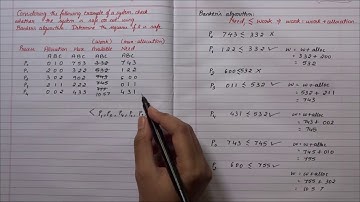 Considering the following example of a system, check
whether the system is safe or not using
Bankers algorithm. Determine the sequence if it is safe
(Work) (max-allocation)
Process Allocation Max Available Need
A B C A B C A B C A B C
P0 0 1 0 7 5 3 3 3 2 7 4 3
P1 2 0 0 3 2 2 5 3 2 1 2 2
P2 3 0 2 9 0 2 7 4 3 6 0 0
P3 2 1 1 2 2 2 7 4 5 0 1 1
P4 0 0 2 4 3 3 7 5 5 4 3 1
10 5 7
< P1, P3, P4, P0
Bankers algorithm.
Needi ≤ work ⇒ work = work + allocation
P0 743 ≤ 332 X
P1 122 ≤ 332 ✓ W = W + alloc
= 332 + 200
= 532
P2 600 ≤ 532 X
P3 011 ≤ 532 ✓ W = W + alloc
= 532 + 211
= 743
P4 431 ≤ 743 ✓ W = W + alloc
= 743 + 002
= 745
P0 743 ≤ 745 ✓ W = W + alloc
= 745 + 010
= 755
P2 600 ≤ 755 ✓ W = W + alloc
= 755 + 302
= 10 5 7